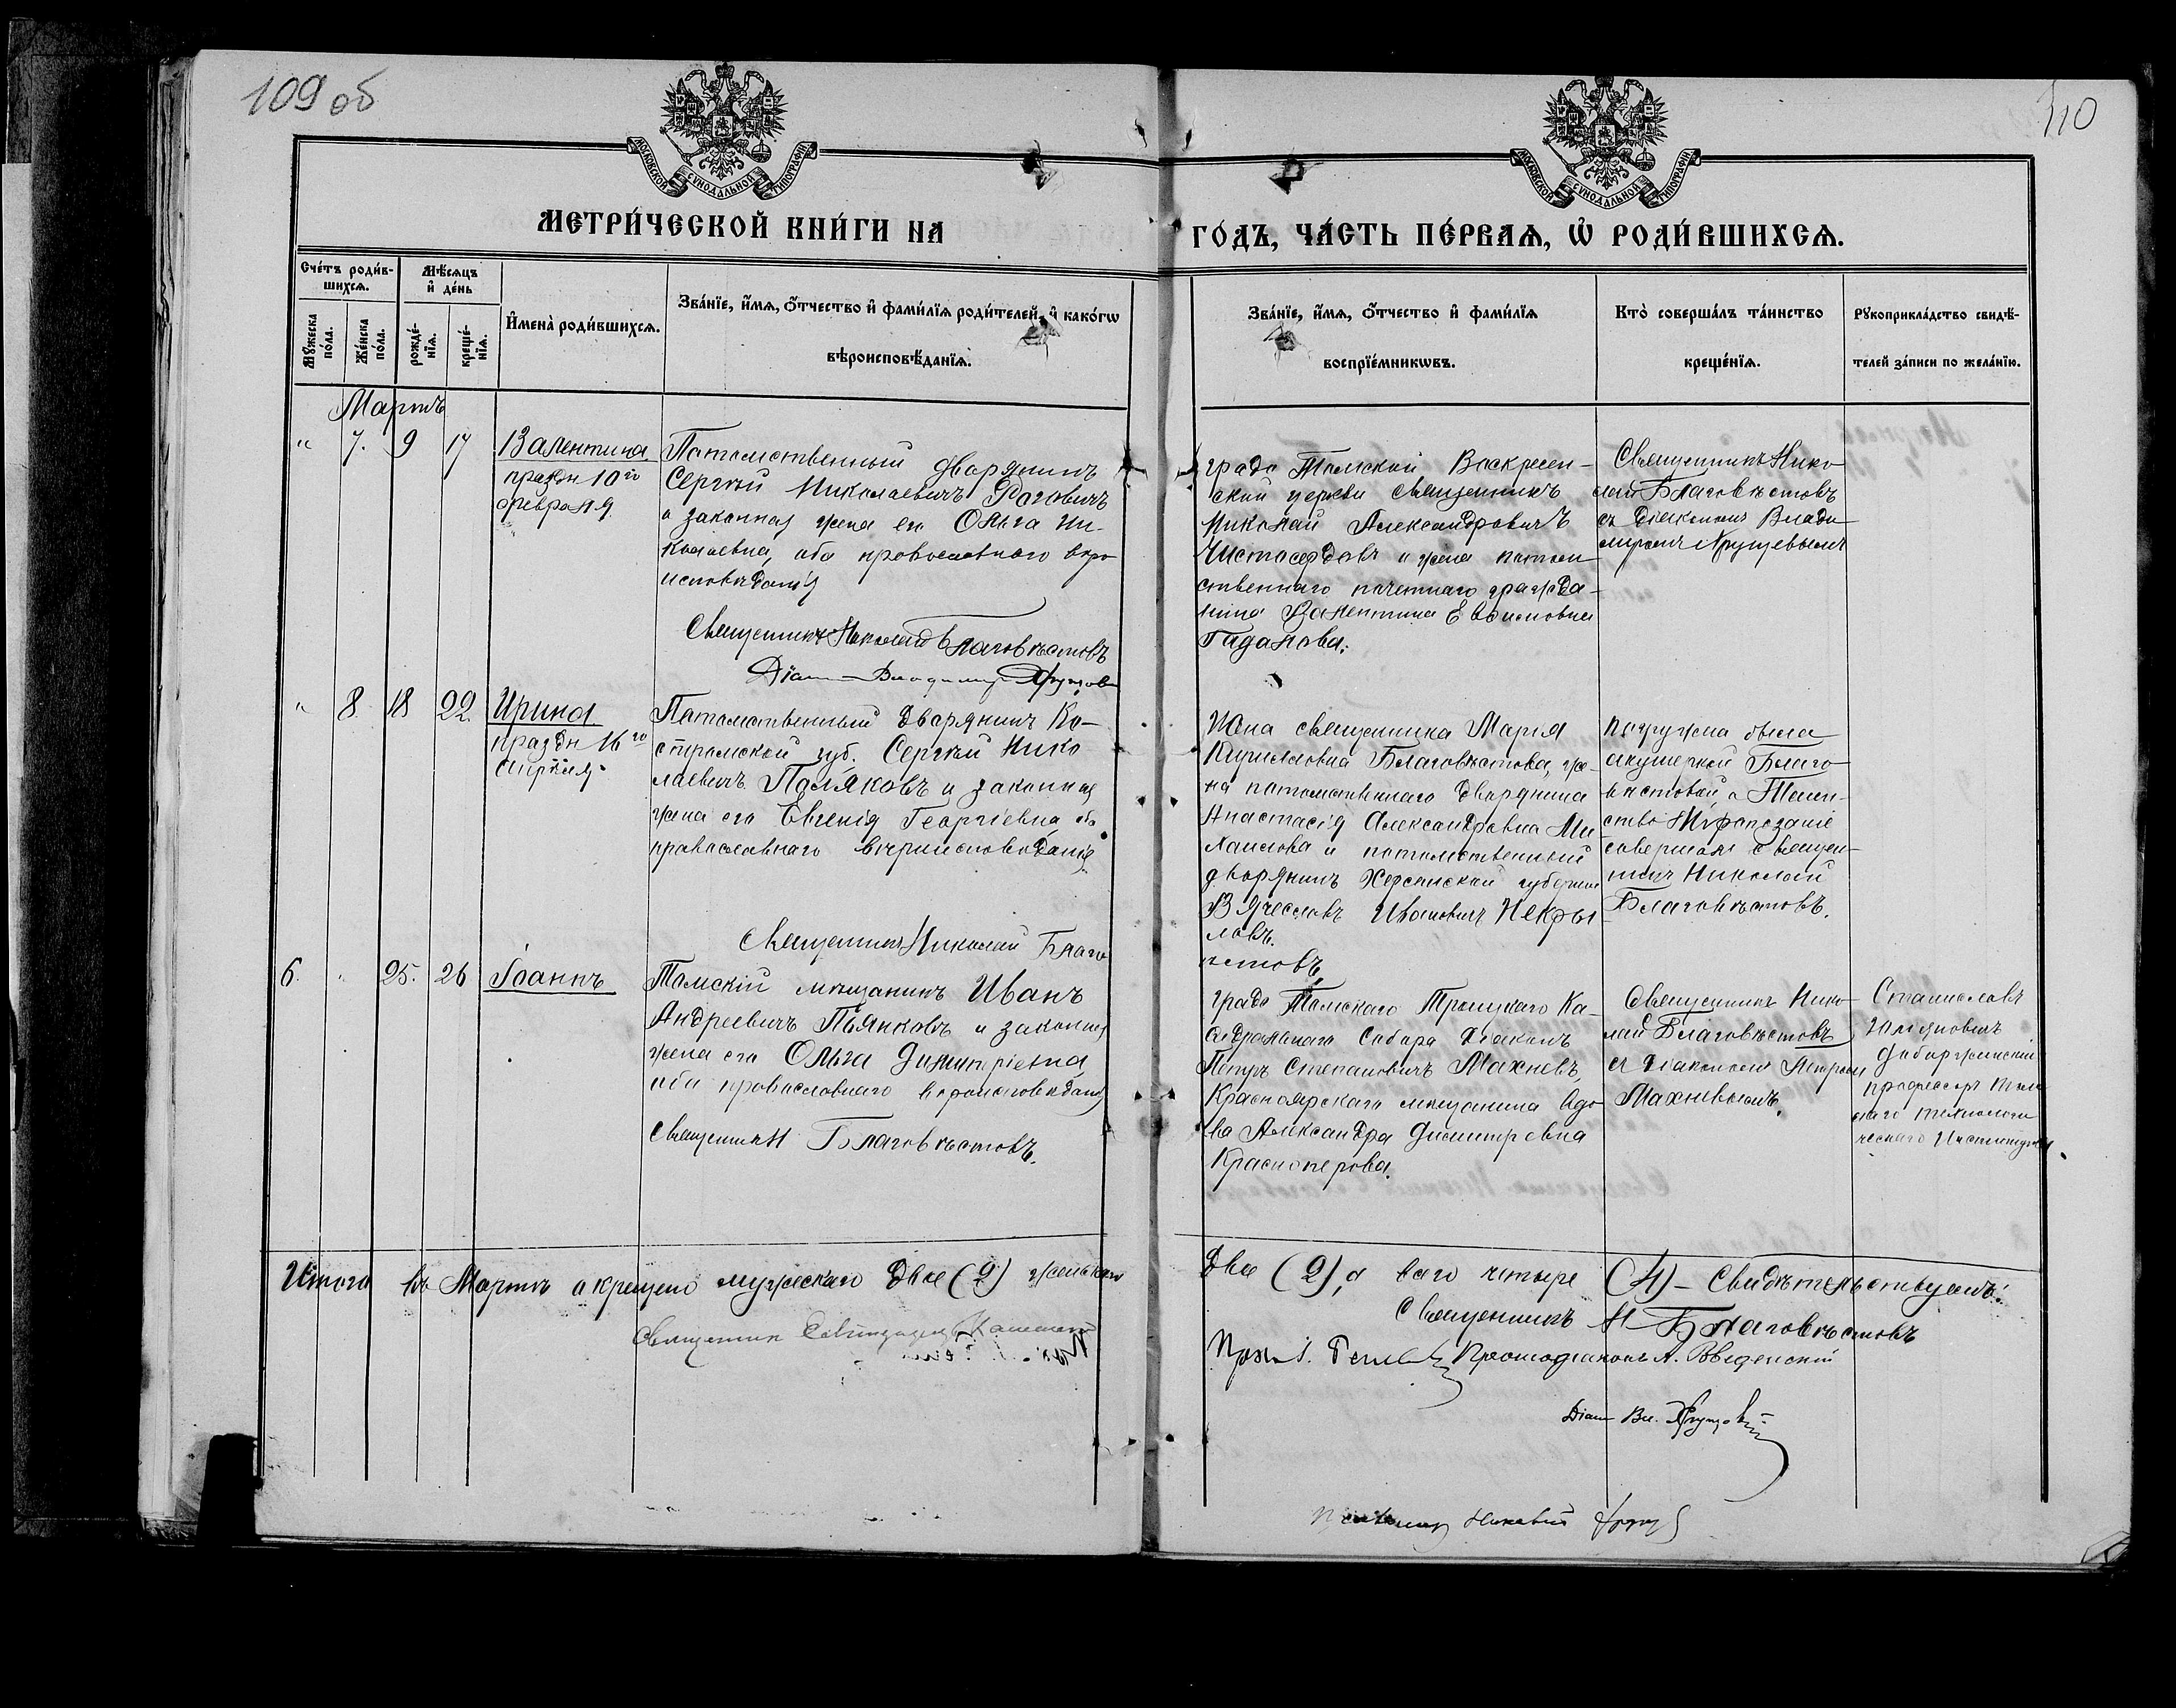 109 об
110
МОСКОВСКОЙ СѴНОДАЛЬНОЙ ТИПОГРАФІИ
МОСКОВСКОЙ СѴНОДАЛЬНОЙ ТИПОГРАФІИ
МЕТРИ́ЧЕСКОЙ КНИ́ГИ НА
ГО́ДЪ, ЧА́СТЬ ПЕ́РВАѦ, Ѡ РОДИ́ВШИХСѦ.
Сче́тъ роди́в-
шихсѧ.
Мѣ́сѧцъ
и де́нь
Мꙋ́жеска
по́ла.
Же́нска
по́ла.
рожде́-
нїѧ.
креще́-
нїѧ.
Имена̀ роди́вшихсѧ.
Зва́нїе, и́мѧ, ѻ́тчество и фами́лїѧ роди́телей, и како́гѡ
вѣроисповѣ́данїѧ.
Зва́нїе, и́мѧ, ѻ́тчество и фами́лїѧ
воспрїе́мникѡвъ.
Кто̀ соверша́лъ та́инство
креще́нїѧ.
Рꙋкоприкла́дство свидѣ́-
телей за́писи по жела́нїю.
Мартъ
" 7. 9 17 Валентина
праздн 10го
февраля
Потомственный дворянинъ
Сергѣй Николаевичъ Рагович
и законная жена его Ольга Ни-
колаевна, оба православнаго вѣро
исповѣданія
Священникъ Николай Благовѣстовъ
Діаконъ Владимиръ Хрущевъ
града Томской Воскресен-
ской церкви священникъ
Николай Александровичъ
Чистосердовъ и жена потом
ственнаго почетнаго гражда-
нина Валентина Евфимовна
Гадалова.
Священникъ Нико
лай Благовѣстовъ
съ діакономъ Влади
миромъ Хрущевымъ
" 8. 18 22. Ирина
праздн 16го
апрѣля.
Потомственный дворянинъ Ко-
стромской губ. Сергѣй Нико
лаевичъ Поляковъ и законная
жена его Евгенія Георгіевна оба
православнаго вѣроисповѣданія
Священникъ Николай Благо
вѣстовъ
Жена священника Марія
Кирилловна Благовѣстова, же-
на потомственнаго дворянина
Анастасія Александровна Ми
хаилова и потомственный
дворянинъ Херсонской губерніи
Вячеславъ Ивановичъ Некры
ловъ.
Погружена была
акушеркой Благо
вѣстовой, а Таин-
ство Миропомазаніе
совершалъ священ-
никъ Николай
Благовѣстовъ.
6. " 25. 26 Іоаннъ
Томскій мѣщанинъ Иванъ
Андреевичъ Пьянковъ и законная
жена его Ольга Димитріевна
оба православнаго вѣроисповѣданія
Священникъ Н Благовѣстовъ.
града Томскаго Троицкаго Ка-
ѳедральнаго Собора діаконъ
Петръ Степановичъ Махневъ,
Красноярскаго мѣщанина вдо
ва Александра Димитріевна
Красноперова.
Священникъ Нико-
лай Благовѣстовъ
съ діакономъ Петромъ
Махневымъ.
Станиславъ
Юліановичъ
Доборжинскій
профессоръ Том
скаго технологи
ческаго Института.
Итого въ Мартѣ окрещено мужескаго двое (2) женскаго
двое (2), а всего четыре (4) – Свидѣтельствуемъ:
Священникъ
Священникъ Н Благовѣстовъ
Протодіаконъ А. Введенскій
Діаконъ Вл. Хрущовъ
Николай